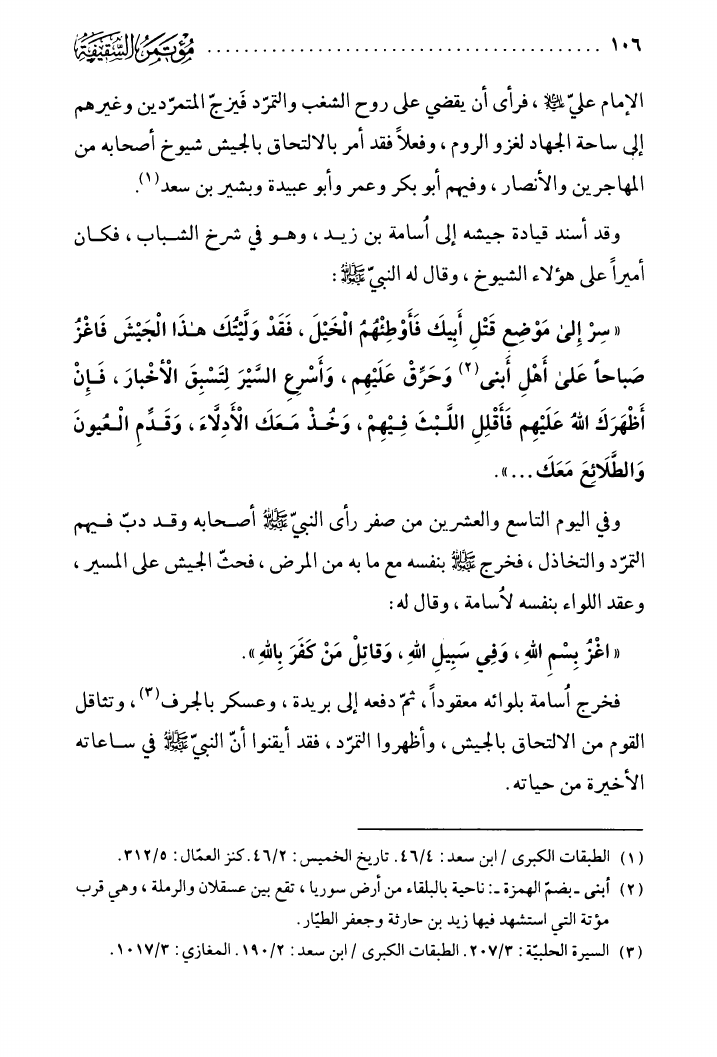 ١٠٦ ........................................ مُؤتَمَرُ السَّقيفَةِ
الإمام عليّ ﵇ ، فرأى أن يقضي على روح الشغب والتمرّد فَيزجّ المتمرّدين وغيرهم
إلى ساحة الجهاد لغزو الروم ، وفعلاً فقد أمر بالالتحاق بالجيش شيوخ أصحابه من
المهاجرين والأنصار ، وفيهم أبو بكر وعمر وأبو عبيدة وبشير بن سعد(١).
وقد أسند قيادة جيشه إلى أُسامة بن زيـد ، وهـو في شرخ الشـباب ، فكـان
أميراً على هؤلاء الشيوخ ، وقال له النبيّ ﷺ :
« سِرْ إِلىٰ مَوْضِعِ قَتْلِ أَبِيكَ فَأَوْطِئْهُمُ الْخَيْلَ ، فَقَدْ وَلَّيْتُكَ هـٰذَا الْجَيْشَ فَاغْزُ
صَباحاً عَلىٰ أَهْلِ أُبنى(٢) وَحَرِّقْ عَلَيْهِم ، وَأَسْرِعِ السَّيْرَ لِتَسْبِقَ الْأَخْبارَ ، فَـإِنْ
أَظْهَرَكَ اللهُ عَلَيْهِم فَأَقْلِلِ اللَّـبْثَ فِـيْهِمْ ، وَخُـذْ مَـعَكَ الْأَدِلَّاءَ ، وَقَـدِّمِ الْـعُيونَ
وَالطَّلَائِعَ مَعَكَ ...».
وفي اليوم التاسع والعشرين من صفر رأى النبيّ ﷺ أصـحابه وقـد دبّ فـيهم
التمرّد والتخاذل ، فخرج ﷺ بنفسه مع ما به من المرض ، فحثّ الجيش على المسير ،
وعقد اللواء بنفسه لأُسامة ، وقال له:
« اغْزُ بِسْمِ اللهِ ، وَفي سَبِيلِ اللهِ ، وَقاتِلْ مَنْ كَفَرَ بِاللهِ ».
فخرج أُسامة بلوائه معقوداً ، ثمّ دفعه إلى بريدة ، وعسكر بالجرف(٣) ، وتثاقل
القوم من الالتحاق بالجيش ، وأظهروا التمرّد ، فقد أيقنوا أنّ النبيّ ﷺ في سـاعاته
الأخيرة من حياته.
(١) الطبقات الكبرى / ابن سعد : ٤٦/٤. تاريخ الخميس : ٤٦/٢. كنز العمّال : ٣١٢/٥.
(٢) أبنى ـ بضمّ الهمزة ـ : ناحية بالبلقاء من أرض سوريا ، تقع بين عسقلان والرملة ، وهي قرب
مؤتة التي استشهد فيها زيد بن حارثة وجعفر الطيّار.
(٣) السيرة الحلبيّة : ٢٠٧/٣. الطبقات الكبرى / ابن سعد : ١٩٠/٢. المغازي : ١٠١٧/٣.